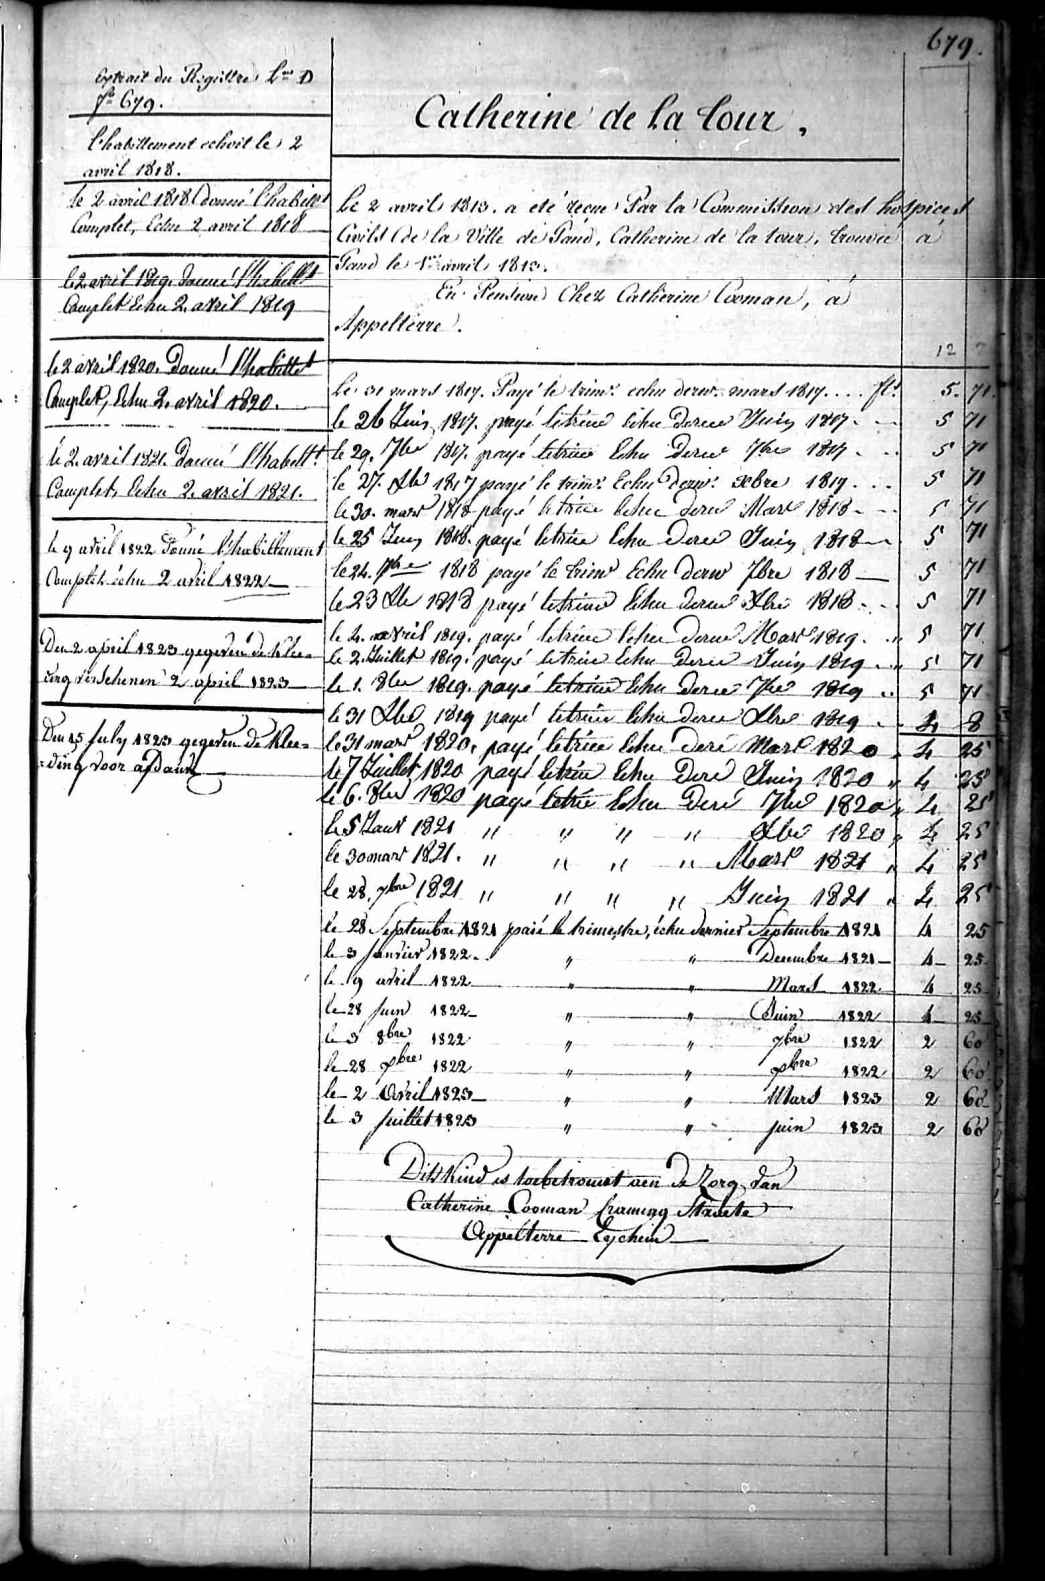 679.
Extrait du Registre L.re D
f.o 679.
l'habillement echoit le 2
avril 1818.
le 2 avril 1818 donné l'habillt
Complet, Echu 2 avril 1818
le 2 avril 1819. donné l'habillt
Complet Echu 2. avril 1819
le 2 avril 1820. Donné l'habillt
Complet, Echu 2. avril 1820.
le 2. avril 1821. Donné l'habillt.
Complet, Echu 2. avril 1821.
le 9 avril 1822 Donné l'habillement
Complet échu 2 avril 1822
Den 2 april 1823 gegeven de klee=
ding verschenen 2 april 1823
Den 15 july 1823 gegeven de klee=
=ding voor afdank
Catherine de la tour,
Le 2 avril 1813. a été reçue Par la Commission des hospices
Civils de la Ville de Gand, Catherine de la tour, trouvée à
Gand le 1er avril 1813.
En Pension Chez Catherine Cooman, à
Appelterre.
12
Le 31 mars 1817. Payé le trimr. echu dernr. mars 1817 .... fls. 5. 71.
le 26 Juin 1817. payé letrim Echu dernr Juin 1817 5 71
le 29. 7bre 1817. payé letrim Echu dernr 7bre 1817 5 71
le 27. Xbre 1817 payé le trimr. Echu dernr. xbre 1817 5 71
le 30. mars 1818 payé letrim Echu dernr Mars 1818 5 71
le 25 Juin 1818. payé letrim Echu dernr Juin 1818 5 71
le 24. 7bre 1818 payé le trimr Echu dernr 7bre 1818 5 71
le 23 Xbre 1818 payé letrim Echu dernr Xbre 1818 5 71
le 4. avril 1819. payé letrim Echu dernr Mars 1819. " 5 71
le 2. Juillet 1819. payé letrim Echu dernr Juin 1819 " 5 71
le 1. 8bre 1819. payé letrim Echu dernr 7bre 1819 " 5 71
le 31 Xbre 1819 payé letrim Echu dernr Xbre 1819 4 8
le 31 mars 1820, payé letrim Echu deré Mars 1820 " 4 25
le 7 Juillet 1820 payé letrim Echu deré Juin 1820 " 4 25
le 6. 8bre 1820 payé letrim Echu deré 7bre 1820 " 4 25
le 5 Janr 1821 " " " " Xbre 1820 " 4 25
le 30 mars 1821. " " " " Mars 1821 " 4 25
le 28. 7bre 1821 " " " " Juin 1821 " 4 25
le 28 Septembre 1821 paié le trimestre, échu dernier Septembre 1821 4 25
le 3 Janvier 1822. " " Decembre 1821 4 25
le 9 avril 1822 " " Mars 1822 4 25
le 28 Juin 1822 " " Juin 1822 4 25
le 3 8bre 1822 " " 7bre 1822 2 60
le 28 xbre 1822 " " xbre 1822 2 60
le 2 Avril 1823 " " Mars 1823 2 60
le 3 juillet 1823 " " juin 1823 2 60
Dit kind is toebetrouwt aen de zorg van
Catherine Cooman Straete
Appelterre Eychem